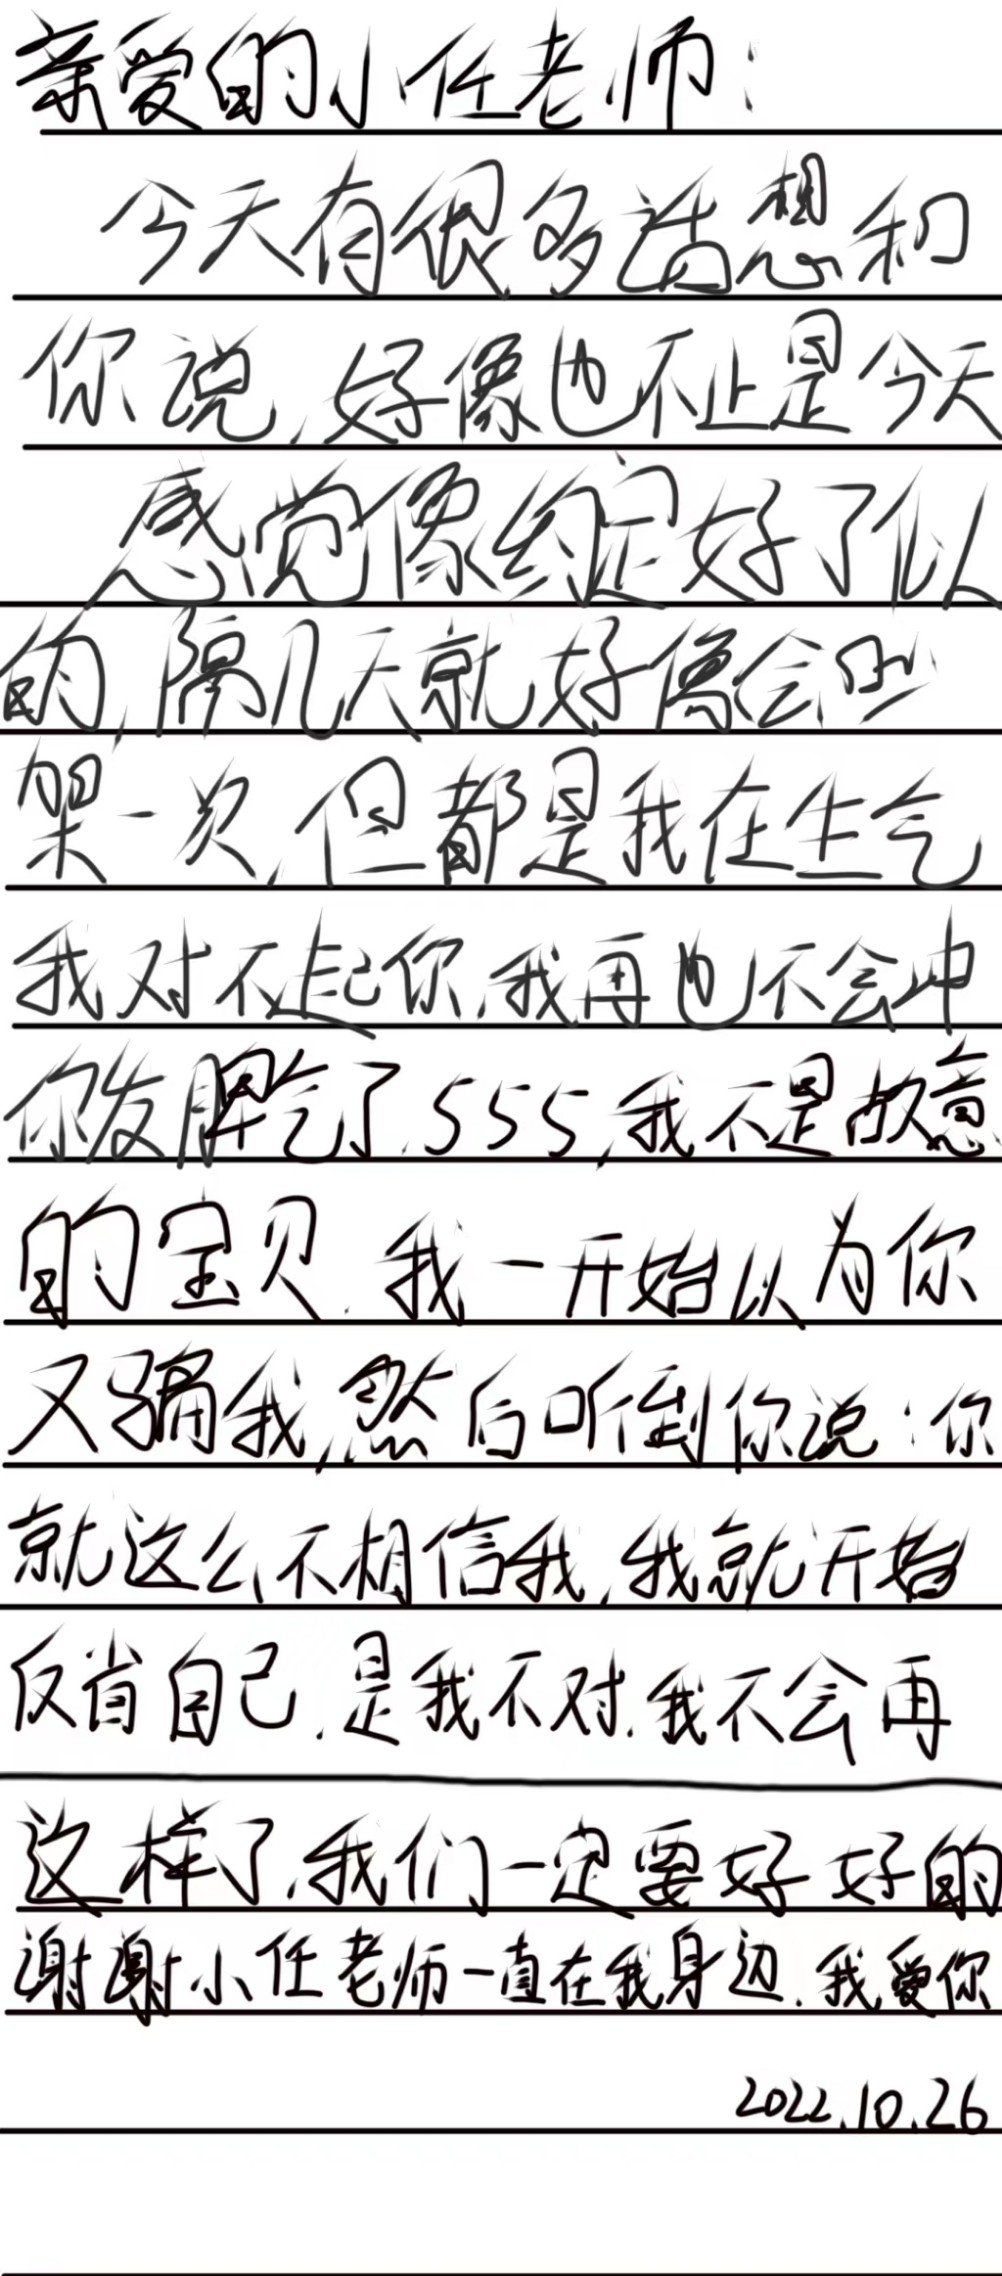 亲爱的小任老师：
今天有很多话想和
你说,好像也不止是今天
感觉像约定好了似
的,隔几天就好像会吵
架一次,但都是我在生气
我对不起你,我再也不会冲
你发脾气了,555,我不是故意
的宝贝,我一开始以为你
又骗我,然后听到你说:你
就这么不相信我,我就开始
反省自己,是我不对,我不会再
这样了,我们一定要好好的
谢谢小任老师一直在我身边,我爱你
2022.10.26